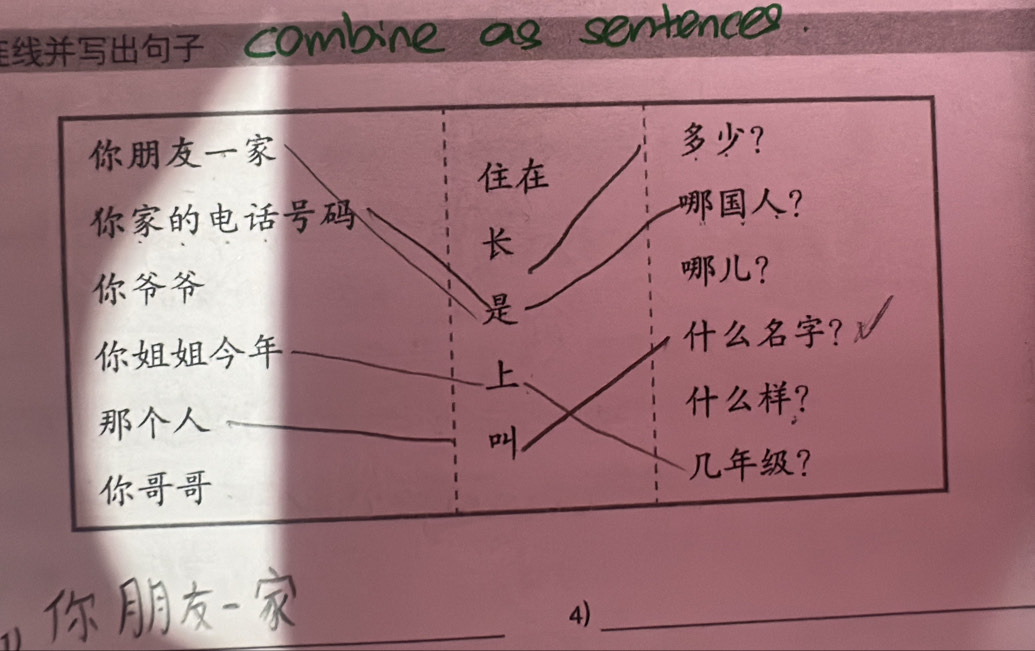 连线并写出句子 combine as sentences.
你朋友一家
你家的电话号码
你爷爷
你姐姐今年
那个人
你哥哥
住在
长
是
上
叫
多少?
哪国人?
哪儿?
什么名字?
什么样?
几年级?
1) 你朋友一家
4)